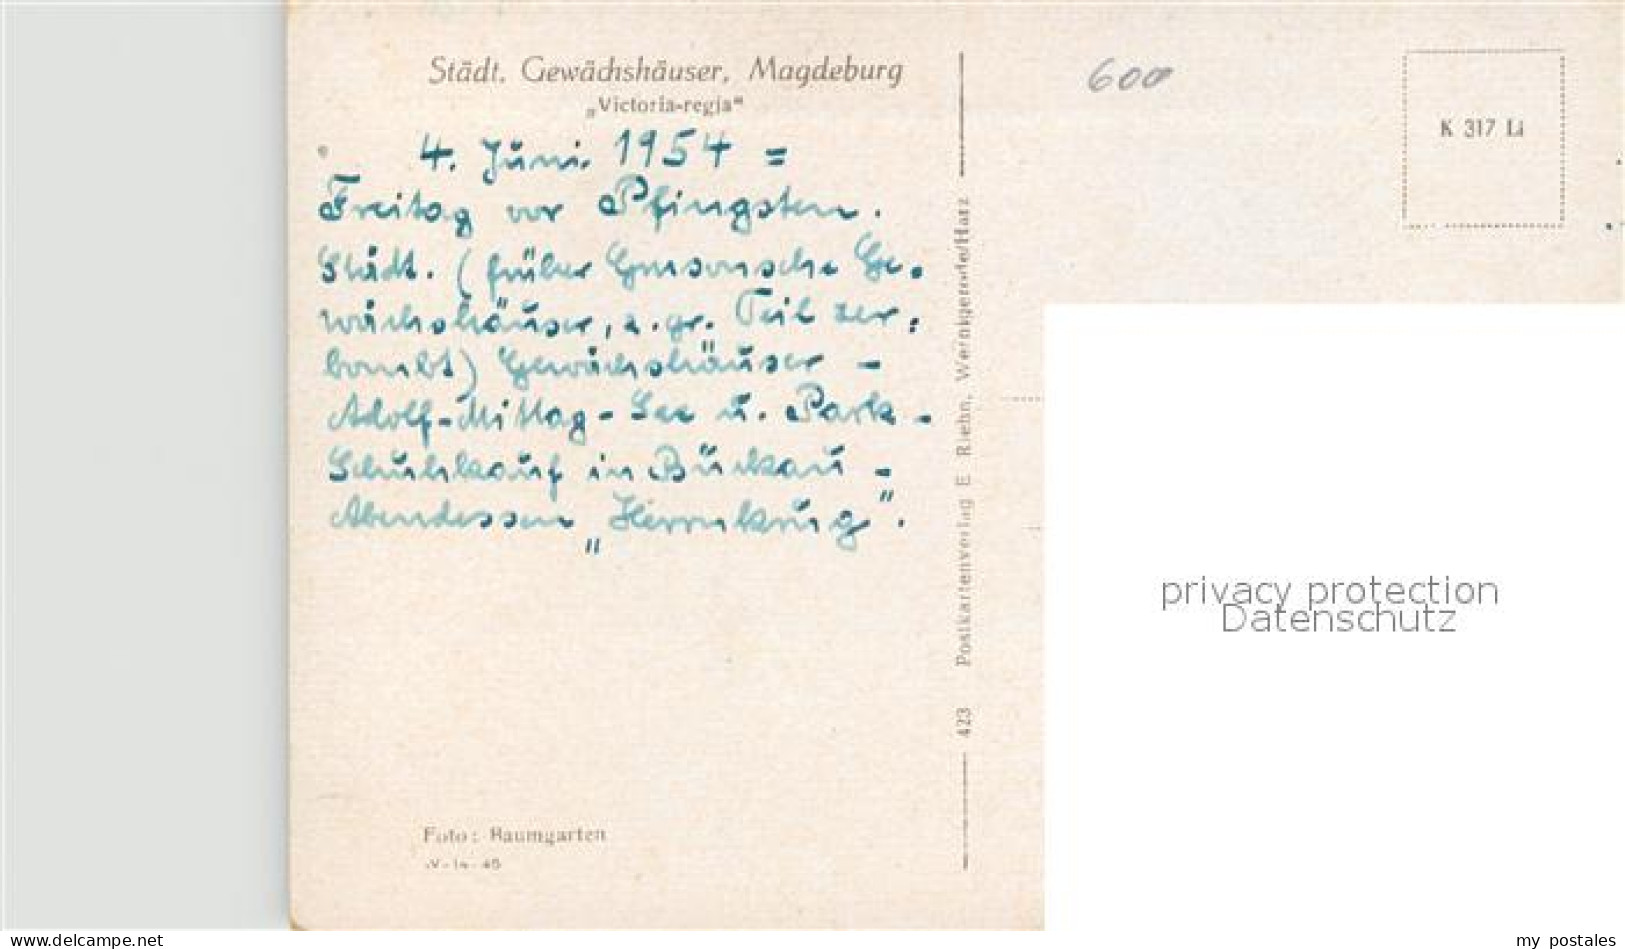 Städt. Gewächshäuser, Magdeburg
„Victoria-regia“
4. Juni 1954 =
Freitag vor Pfingsten.
Städt. (früher Grusonsche Ge-
wächshäuser, z. gr. Teil zer-
bombt) Gewächshäuser -
Adolf-Mittag-See u. Park -
Schuhkauf in Buckau -
Abendessen „Herrnkrug".
Foto: Baumgarten
423 Postkartenverlag E. Riehn, Wernigerode/Harz
600
K 317 Li
privacy protection
Datenschutz
www.delcampe.net
my_postales